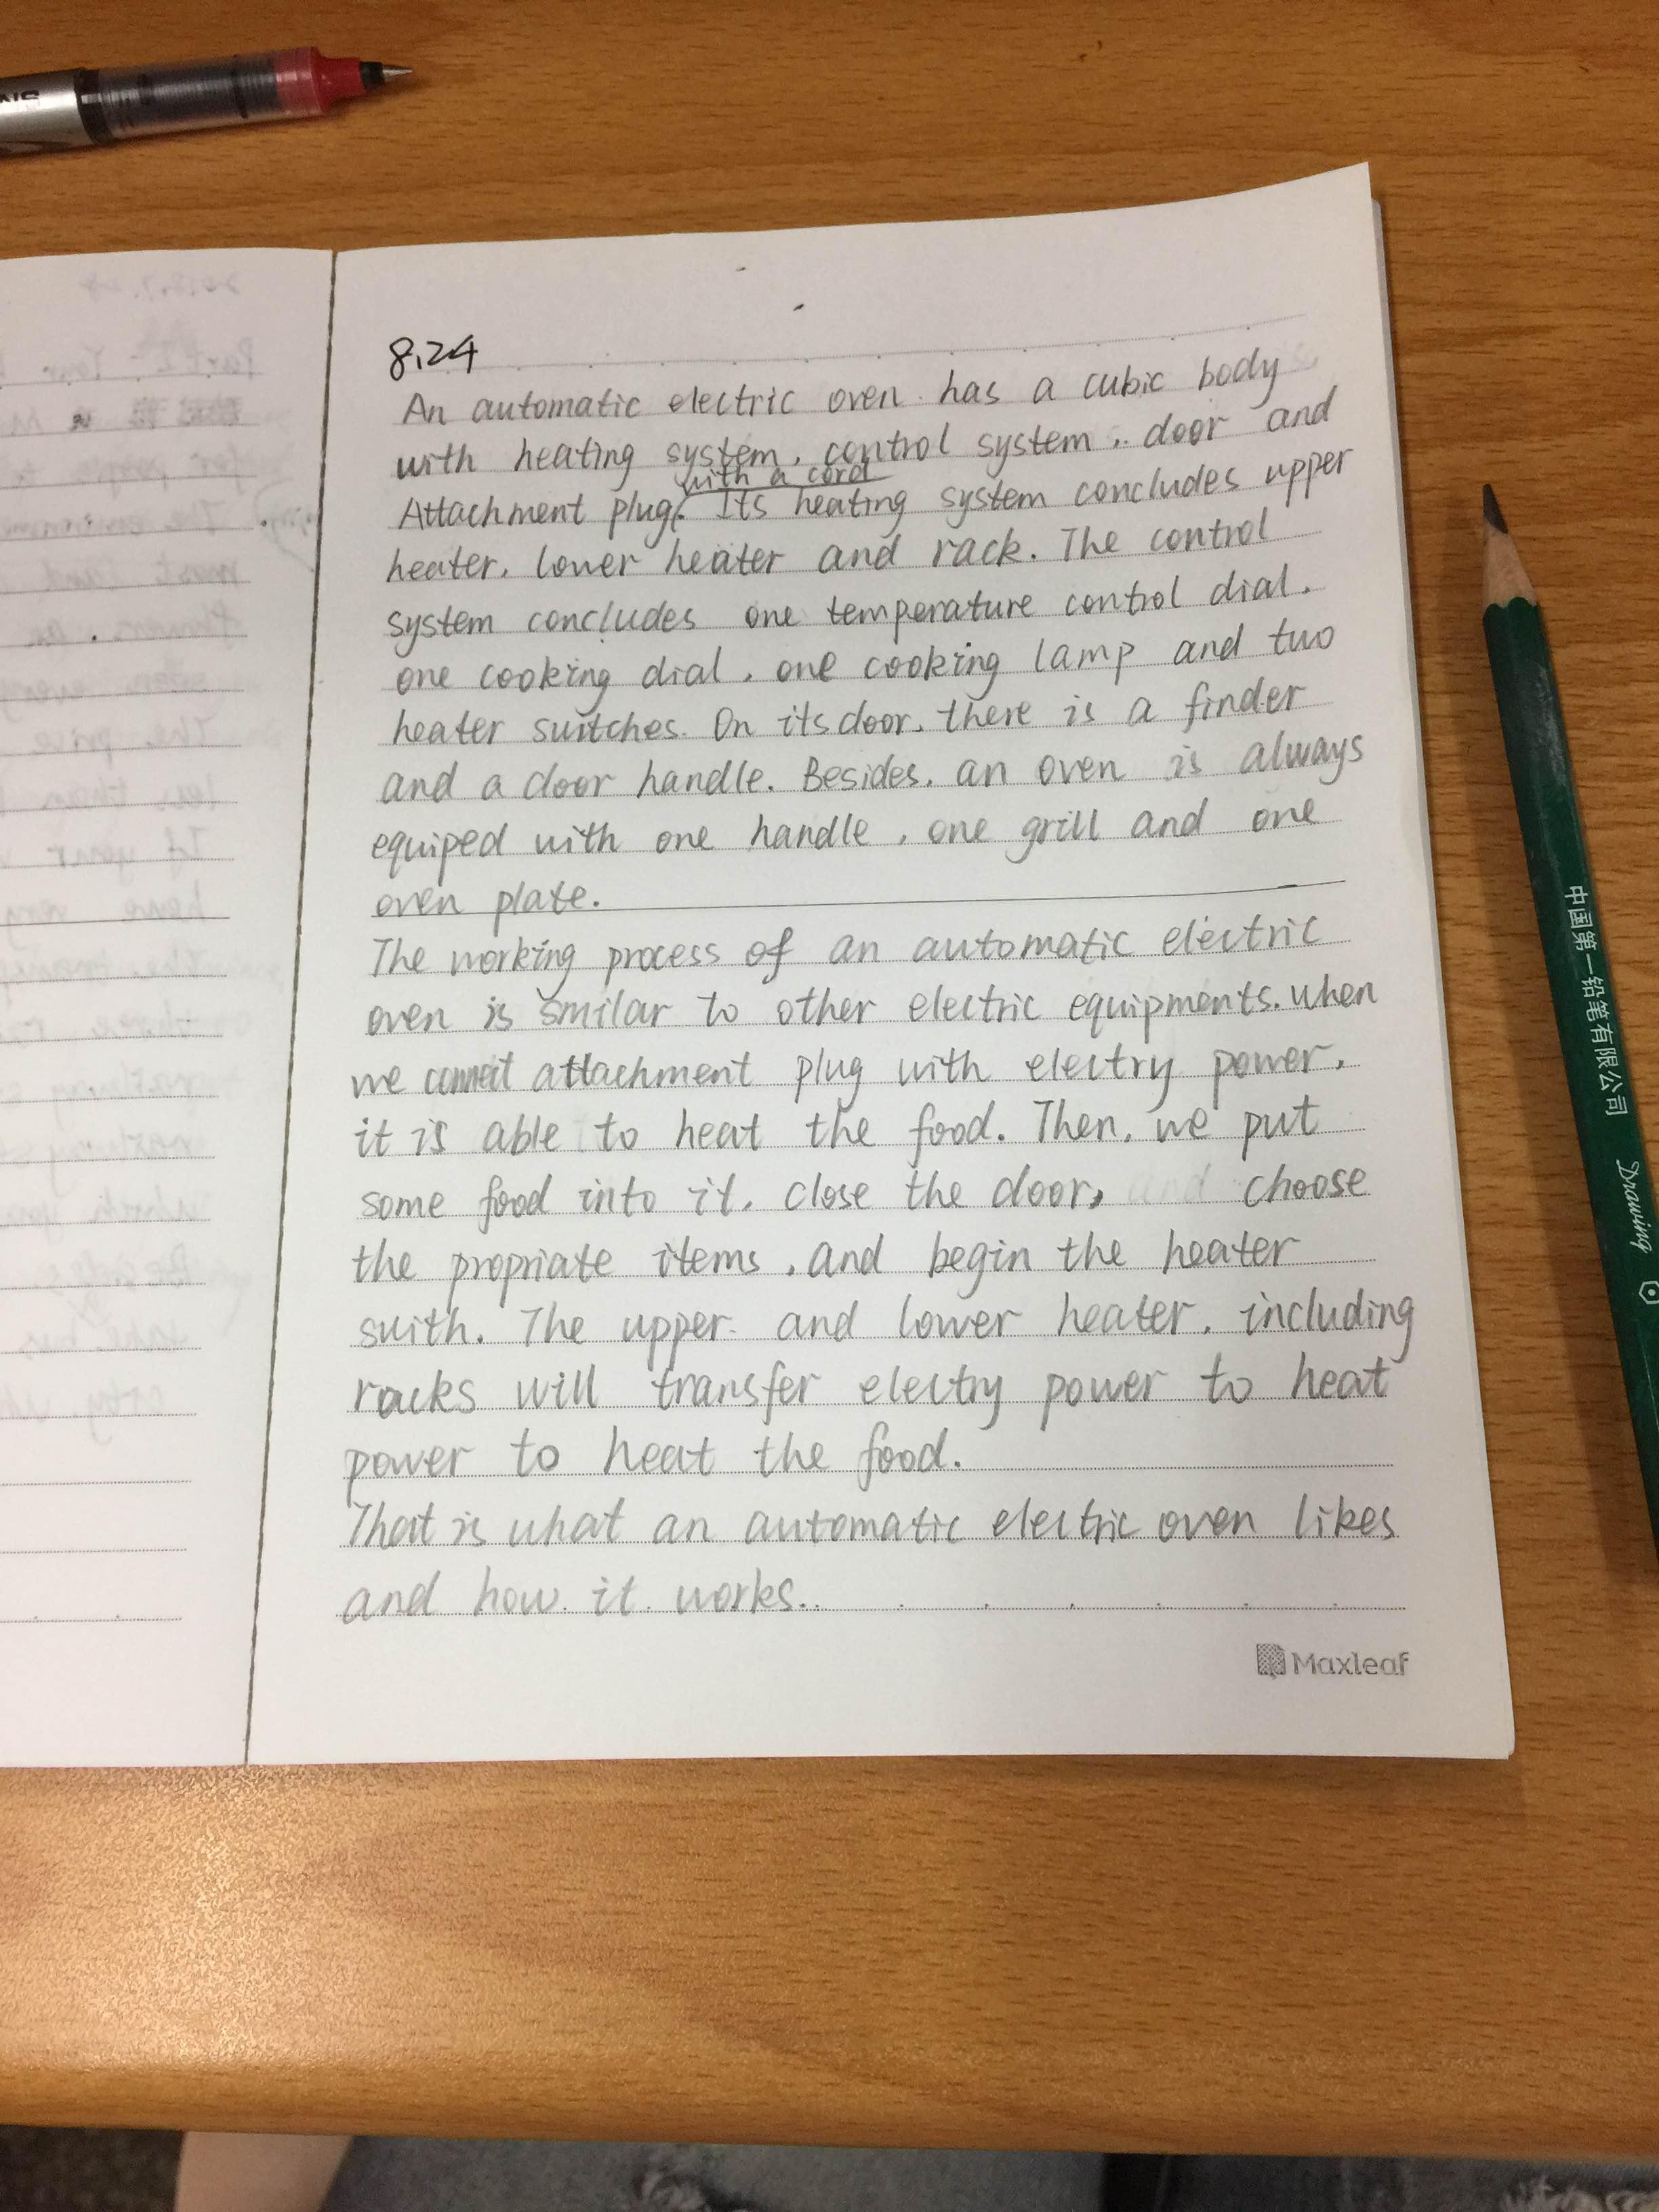 8.24
An automatic electric oven has a cubic body
with heating system, control system, door and
with a cord
Attachment plug. Its heating system concludes upper
heater, lower heater and rack. The control
system concludes one temperature control dial,
one cooking dial, one cooking lamp and two
heater switches. On its door, there is a finder
and a door handle. Besides, an oven is always
equiped with one handle, one grill and one
oven plate.
The working process of an automatic electric
oven is smilar to other electric equipments. when
we connect attachment plug with electry power,
it is able to heat the food. Then, we put
some food into it, close the door, choose
the propriate items, and begin the heater
swith. The upper and lower heater, including
racks will transfer electry power to heat
power to heat the food.
That is what an automatic electric oven likes
and how it works.
Maxleaf
中国第一铅笔有限公司 Drawing